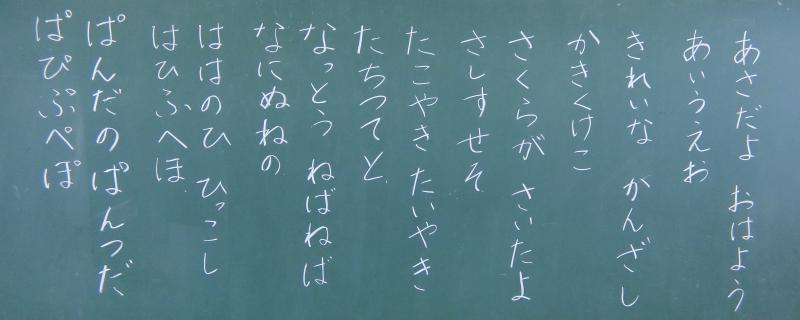 あさだよ おはよう
あいうえお
きれいな かんざし
かきくけこ
さくらが さいたよ
さしすせそ
たこやき たいやき
たちつてと
なっとう ねばねば
なにぬねの
ははのひ ひっこし
はひふへほ
ぱんだのぱんつだ
ぱぴぷぺぽ